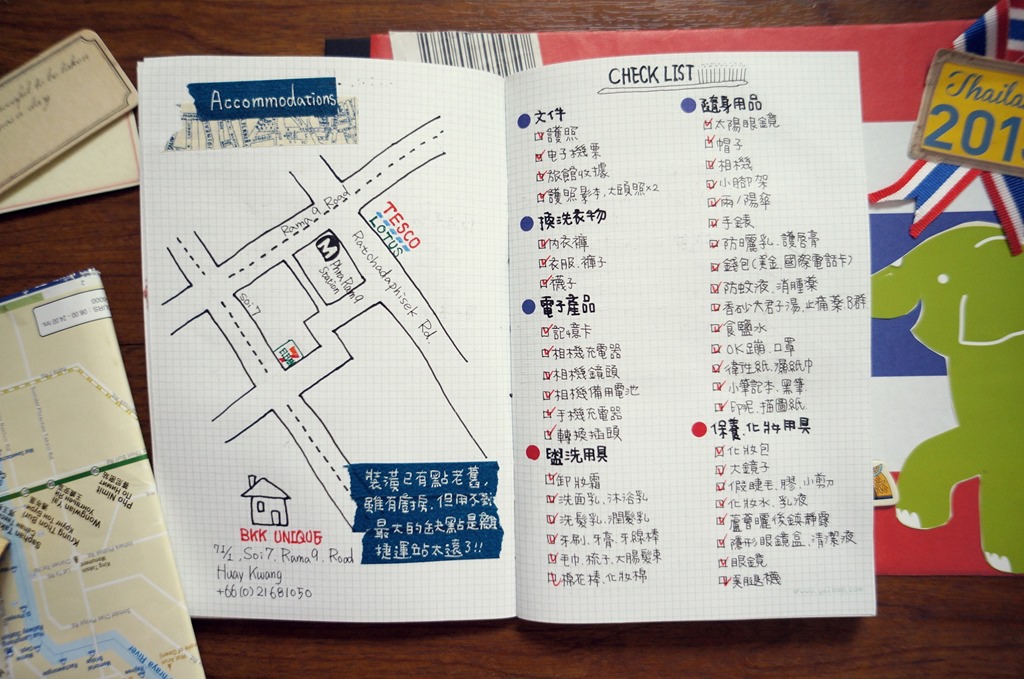 Accommodations
Rama 9 Road
TESCO
LOTUS
M
Phra Ram9
Station
Ratchadaphisek Rd.
Soi7
7
裝潢已有點老舊,
雖有廚房,但用不到
最大的缺點是離
捷運站太遠了!!
BKK UNIQUE
71/1, Soi7, Rama9, Road
Huay Kwang
+66(0)21681050
CHECK LIST
文件
護照
电子機票
旅館收據
護照影本,大頭照×2
換洗衣物
內衣褲
衣服、褲子
襪子
電子產品
記憶卡
相機充電器
相機鏡頭
相機備用電池
手機充電器
轉換插頭
盥洗用具
卸妝霜
洗面乳、沐浴乳
洗髮乳、潤髮乳
牙刷、牙膏、牙線棒
毛巾、梳子、大腸髮束
棉花棒、化妝棉
隨身用品
太陽眼鏡
帽子
相機
小腳架
雨/陽傘
手錶
防曬乳、護唇膏
錢包(美金、國際電話卡)
防蚊液、消腫藥
香砂六君子湯,止痛藥B群
食鹽水
OK蹦、口罩
衛生紙、濕紙巾
小筆記本、黑筆
印泥、描圖紙
保養、化妝用具
化妝包
大鏡子
假睫毛、膠、小剪刀
化妝水、乳液
蘆薈曬後鎮靜露
隱形眼鏡盒、清潔液
眼鏡
美腿襪
Thaila
201